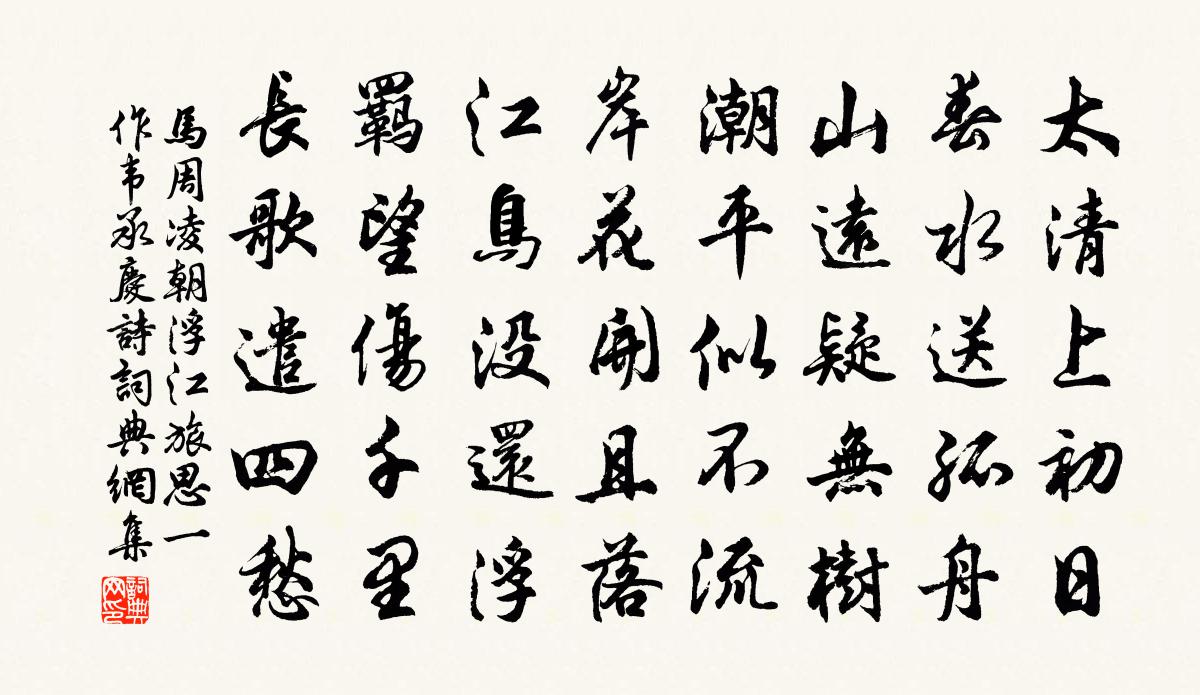 太清上初日
春水送孤舟
山遠疑無樹
潮平似不流
岸花開且落
江鳥没還浮
羈望傷千里
長歌遣四愁
馬周凌朝浮江旅思一
作韦承慶詩詞典網集
詞典
网印